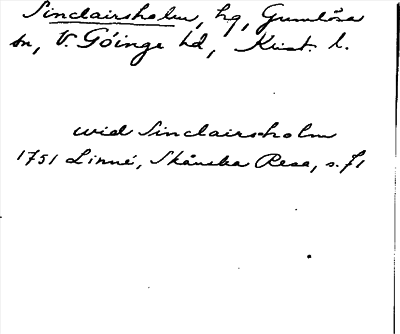 Sinclairsholm, hg, Gumlösa
sn, V. Göinge hd, Krist. l.
wid Sinclairsholm
1751 Linné, Skånska Resa, s. 71